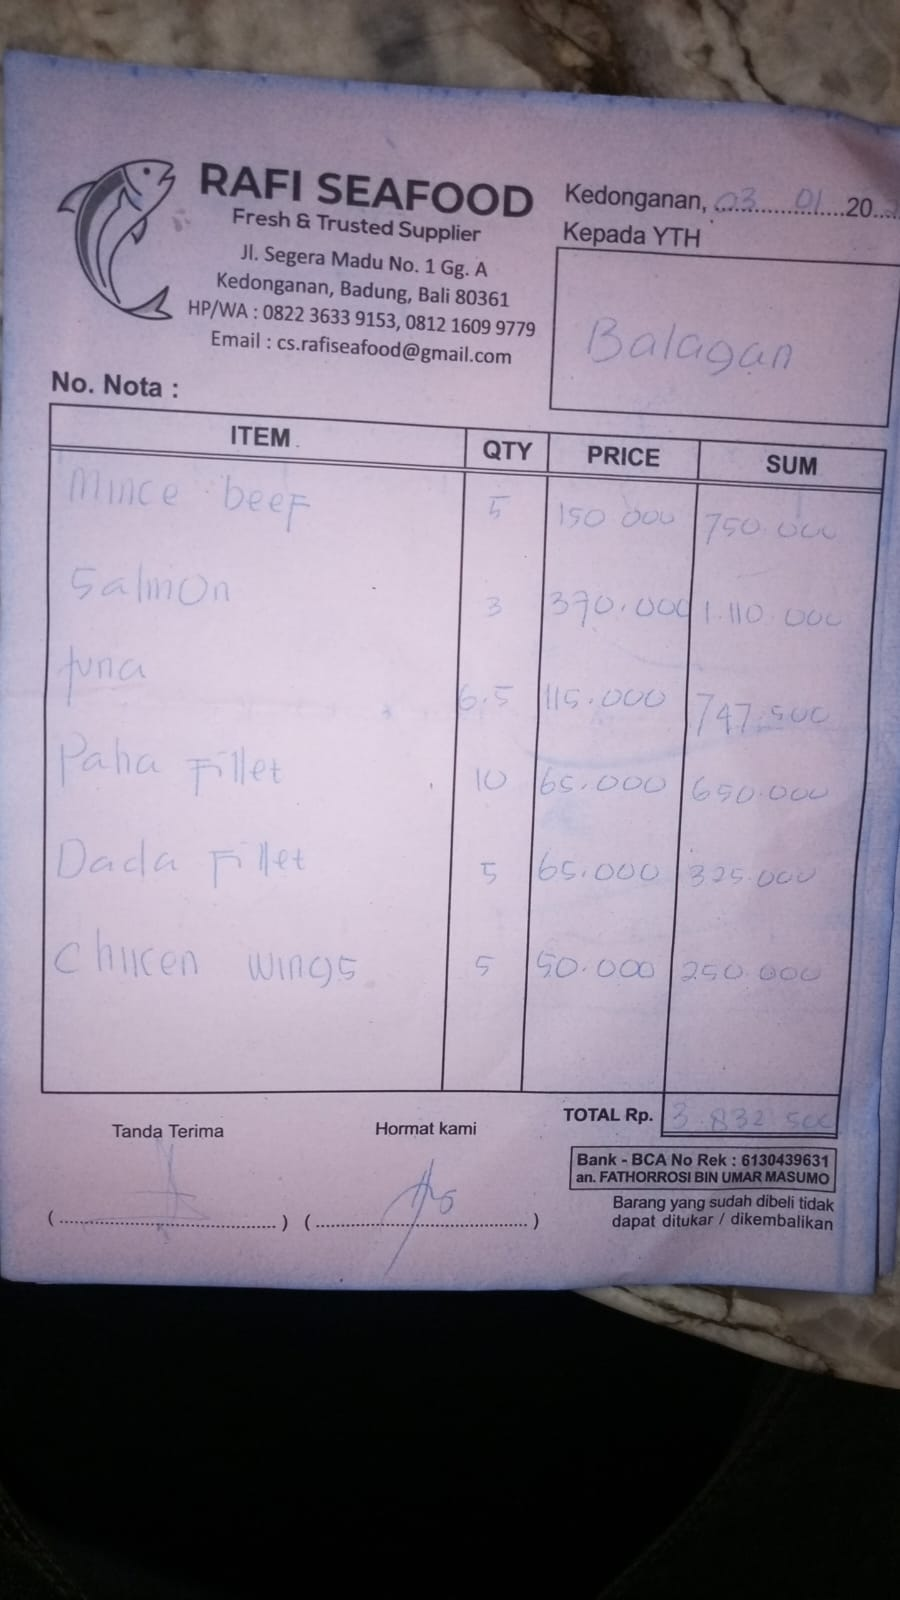 RAFI SEAFOOD
Fresh & Trusted Supplier
Jl. Segera Madu No. 1 Gg. A
Kedonganan, Badung, Bali 80361
HP/WA : 0822 3633 9153, 0812 1609 9779
Email : cs.rafiseafood@gmail.com
Kedonganan, 03 01 20
Kepada YTH
Balagan
No. Nota :
ITEM QTY PRICE SUM
Mince beef 5 150 000 750.000
Salmon 3 370.000 1.110.000
tuna 6.5 115.000 747.500
Paha Fillet 10 65.000 650.000
Dada Fillet 5 65.000 325.000
Chicen wings 5 50.000 250.000
TOTAL Rp. 3.832 500
Tanda Terima Hormat kami
Bank - BCA No Rek : 6130439631
an. FATHORROSI BIN UMAR MASUMO
Barang yang sudah dibeli tidak
dapat ditukar / dikembalikan